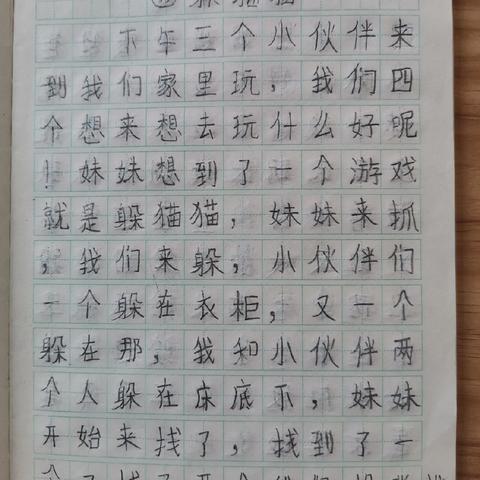 躲猫猫
下午三个小伙伴来
到我们家里玩，我们四
个想来想去玩什么好呢
！妹妹想到了一个游戏
就是躲猫猫，妹妹来抓
，我们来躲，小伙伴们
一个躲在衣柜，又一个
躲在那，我和小伙伴两
个人躲在床底下，妹妹
开始来找了，找到了一